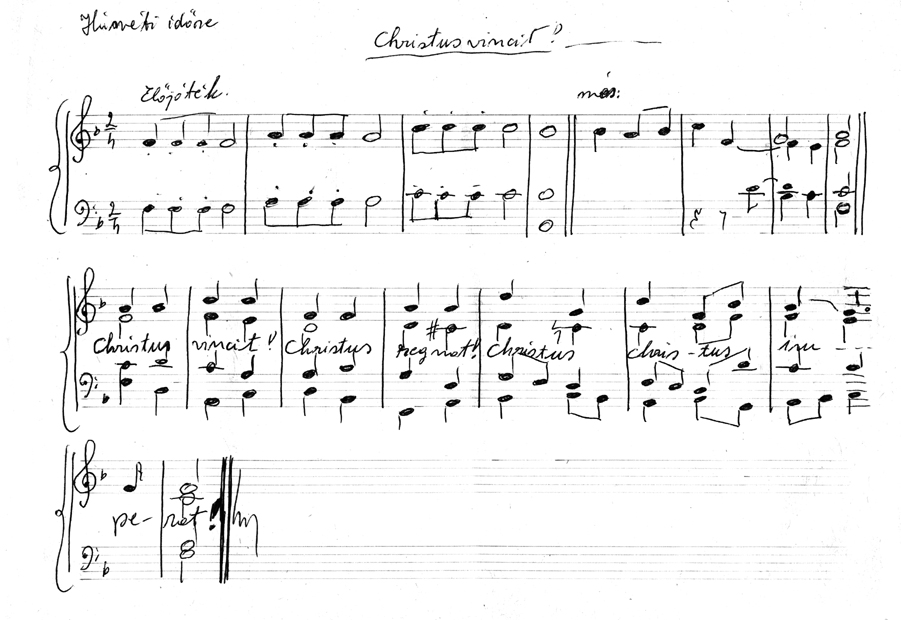 Húsvéti időre
Christus vincit!
Előjáték. más:
2/4
2/4
Christus vincit! Christus regnat! Christus Chris-tus im
pe- rat!